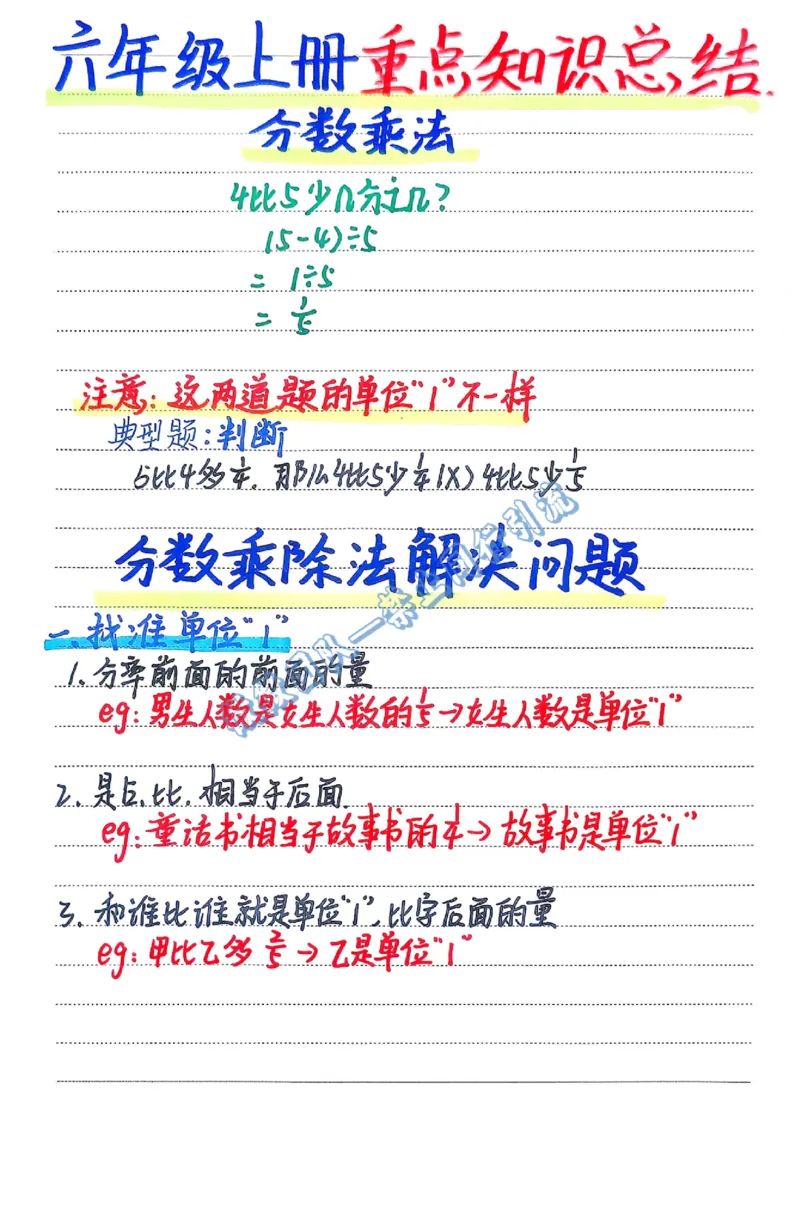 六年级上册重点知识总结.
分数乘法
4比5少几分之几?
(5-4)÷5
= 1÷5
= 1/5
注意:这两道题的单位"1"不一样
典型题:判断
5比4多1/4,那么4比5少1/4(×) 4比5少1/5
分数乘除法解决问题
一、找准单位"1"
1.分率前面的前面的量
eg:男生人数是女生人数的1/5→女生人数是单位"1"
2.是占,比,相当于后面
eg:童话书相当于故事书的1/4→故事书是单位"1"
3.和谁比谁就是单位"1",比字后面的量
eg:甲比乙多2/5→乙是单位"1"